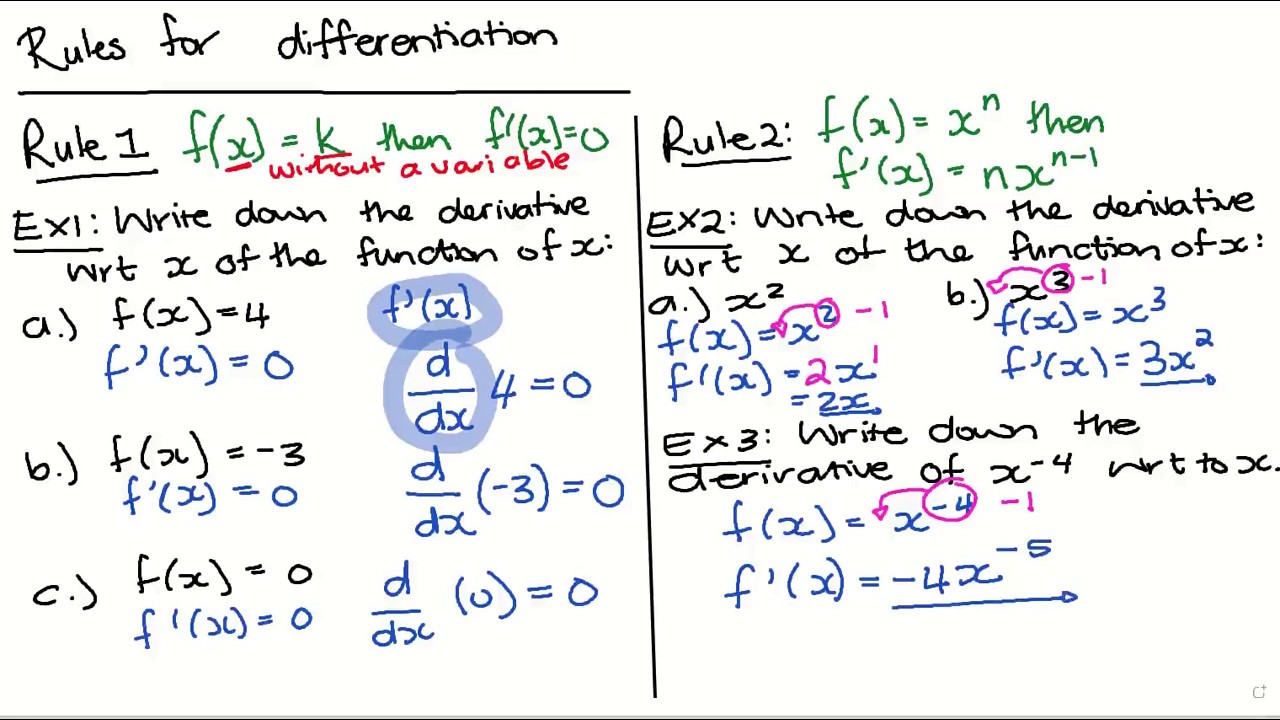 Rules for differentiation
Rule 1 f(x) = k then f'(x)=0
without a variable
Ex1: Write down the derivative
wrt x of the function of x:
a.) f(x)=4
f'(x) = 0
f'(x)
d/dx 4 = 0
b.) f(x) = -3
f'(x) = 0
d/dx (-3) = 0
c.) f(x) = 0
f'(x) = 0
d/dx (0) = 0
Rule 2: f(x) = xⁿ then
f'(x) = nxⁿ⁻¹
EX2: Write down the derivative
wrt x of the function of x:
a.) x²
f(x) = x² -1
f'(x) = 2x¹
= 2x
b.) x³ -1
f(x) = x³
f'(x) = 3x²
Ex3: Write down the
derivative of x⁻⁴ wrt to x.
f(x) = x⁻⁴ -1
f'(x) = -4x⁻⁵